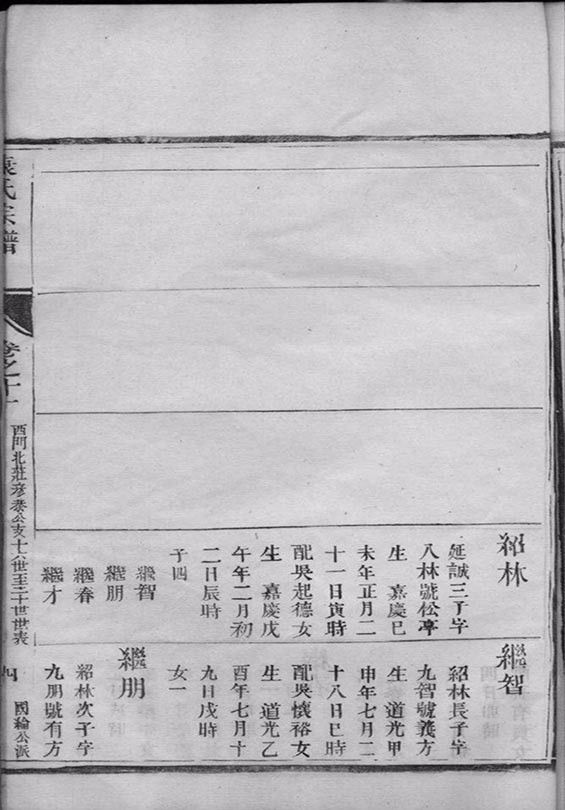 紹林
延誠三子字
八林號松亭
生　嘉慶巳
未年正月二
十一日寅時
配吳起德女
生　嘉慶戊
午年二月初
二日辰時
子四
繼智
繼朋
繼春
繼才
繼智
紹林長子字
九智號義方
生　道光甲
申年七月二
十八日巳時
配吳懷裕女
生　道光乙
酉年七月十
九日戌時
女一
繼朋
紹林次子字
九朋號有方
袁氏宗譜
卷之十一
西門北莊彦泰公支十六世至二十世世表
九
國綸公派